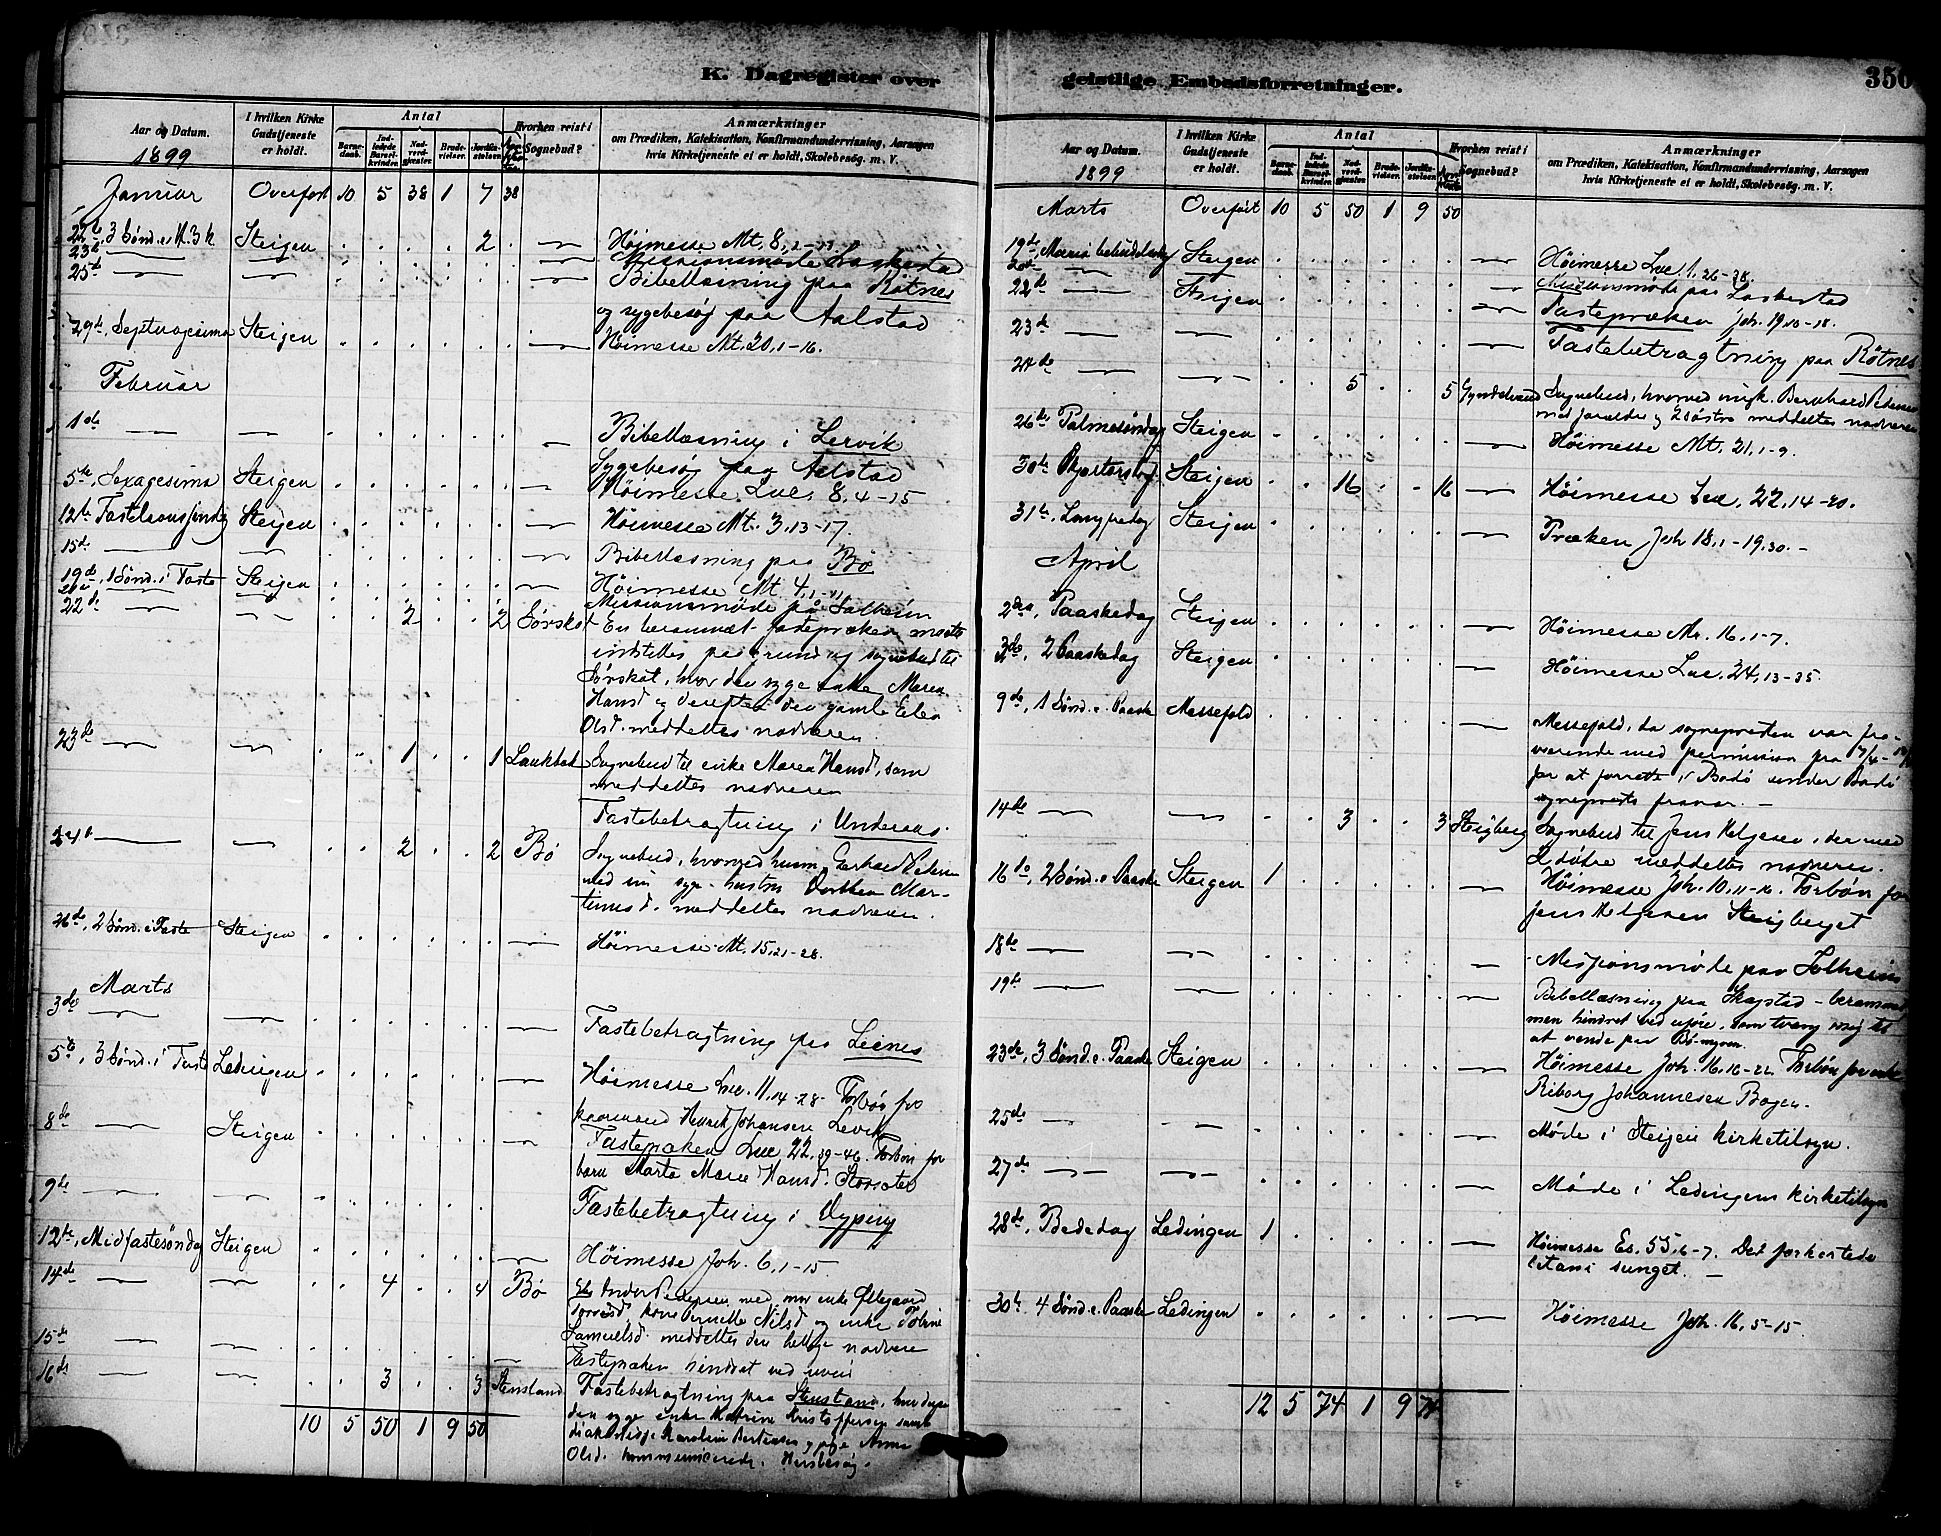 K. Dagregister over
Aar og Datum.
1899
I hvilken Kirke
Gudstjeneste
er holdt.
Antal
Barne-
daab.
Ind-
ledede
Barsel-
kvinder.
Nad-
verd-
gjester.
Brude-
vielser.
Jordfæ-
stelser.
Hvorhen reist i
Sognebud?
Anmærkninger
om Prædiken, Katekisation, Konfirmandundervisning, Aarsagen
hvis Kirketjeneste ei er holdt, Skolebesög. m. V.
Januar Overført 10 5 38 1 7 38
22de, 3 Sønd. e. H. 3 K Steigen 2 Høimesse Mt. 8,
23de Missionsmøde Laskestad
25de Bibellæsning paa Røtnes
og sygebesøg paa Aalstad
29de, Septuagesima Steigen Høimesse Mt. 20, 1-16.
Februar
1ste Bibellæsning i Lervik
Sygebesøg paa Aalstad
5te, Sexagesima Steigen Høimesse Luc. 8, 4-15
12te Fastelavnssøndag Steigen Høimesse Mt. 3, 13-17.
15de Bibellæsning paa Bø
19de, 1 Sønd. i Faste Steigen Høimesse Mt. 4, 1-11
Missionsmøde på Solheim
22de 2 2 Sørskot En berammet fastepræken maatte
indstilles på grund af sognebud til
Sørskot, hvor den syge enke Maren
Hansd. og derefter den gamle Ellen
Olsd. meddeltes nadveren.
23de 1 1 Sognebud til enke Maren Hansd., som
meddeltes nadveren
Fastebetragtning i Underaas.
24de 2 2 Bø Sognebud, hvorved husm. Gerhard Pedersen
med sin syge hustru Dorthea Mar-
tinusd. meddeltes nadveren.
26de, 2 Sønd. i Faste Steigen Høimesse Mt. 15, 21-28.
Marts
3de Fastebetragtning paa Leines
5te, 3 Sønd. i Faste Ledingen Høimesse Luc. 11, 14-28. Forbøn for
Henrik Johansen Lervik
8de Steigen Fastepræken Luc. 22, 39-46. Forbøn for
barn Marta Marie Hansd. Storsæter
9de Fastebetragtning i
12te, Midfastesøndag Steigen Høimesse Joh. 6, 1-15.
14de 4 4 Bø Pedersen med mor enke
kone Pernelle Nilsd. og enke
Samuelsd. meddeltes den hellige nadvere
15de Fastepræken hindret ved uveir
16de 3 3 Stensland Fastebetragtning paa Stensland, hvor
den syge enke Katrine Kristoffersen samt
Karoline Bertensen og pige Anne
Olsd. kommunicerede. Husbesøg.
10 5 50 1 9 50
geistlige Embedsforretninger.
350
Aar og Datum.
1899
I hvilken Kirke
Gudstjeneste
er holdt.
Antal
Barne-
daab.
Ind-
ledede
Barsel-
kvinder.
Nad-
verd-
gjester.
Brude-
vielser.
Jordfæ-
stelser.
Hvorhen reist i
Sognebud?
Anmærkninger
om Prædiken, Katekisation, Konfirmandundervisning, Aarsagen
hvis Kirketjeneste ei er holdt, Skolebesög. m. V.
Marts Overført 10 5 50 1 9 50
19de, Mariæ bebudelsesdag Steigen Høimesse Luc. 1, 26-38.
20de Missionsmøde paa Laskestad
22de Steigen Fastepræken Joh. 19, 10-18.
23de Fastebetragtning paa Røtnes
24de 5 5 Sognebud, hvorved ungk. Bernhard Pedersen
med forældre og 2 søstre meddeltes nadveren
26de Palmesøndag Steigen Høimesse Mt. 21, 1-9.
30te Skjærtorsdag Steigen 16 16 Høimesse Luc. 22, 14-20.
31te, Langfredag Steigen Præken Joh 18, 1-19, 30.-
April
2den, Paaskedag Steigen Høimesse Mr. 16, 1-7.
3de, 2 Paaskedag Steigen Høimesse Luc. 24, 13-35.
9de, 1 Sønd. e. Paaske Messefald Messefald, da sognepresten var fra-
værende med permission fra 7/4
for at forrette i Bodø under Bodø
sogneprests fravær.-
14de 3 3 Steigberg Sognebud til Jens Helgesen, der med
2 døtre meddeltes nadveren.
16de, 2 Sønd. e. Paaske Steigen 1 Høimesse Joh. 10, 11-16. Forbøn for
Jens Helgesen Steigberget
18de Missionsmøde paa Solheim
19de Bibellæsning paa Skagstad - berammet
men hindret ved uføre, som tvang mig til
at vende paa Bø-myren.
23de, 3 Sønd. e. Paaske Steigen Høimesse Joh. 16, 16-22. Forbøn for enke
Riborg Johannesen Bogen.
25de Møde i Steigen kirketilsyn.
27de Møde i Ledingens kirketilsyn
28de, Bededag Ledingen 1 Høimesse Es. 55, 6-7. Det forkortede
litani sunget.-
30te 4 Sønd. e. Paaske Ledingen Høimesse Joh. 16, 5-15.
12 5 74 1 9 74